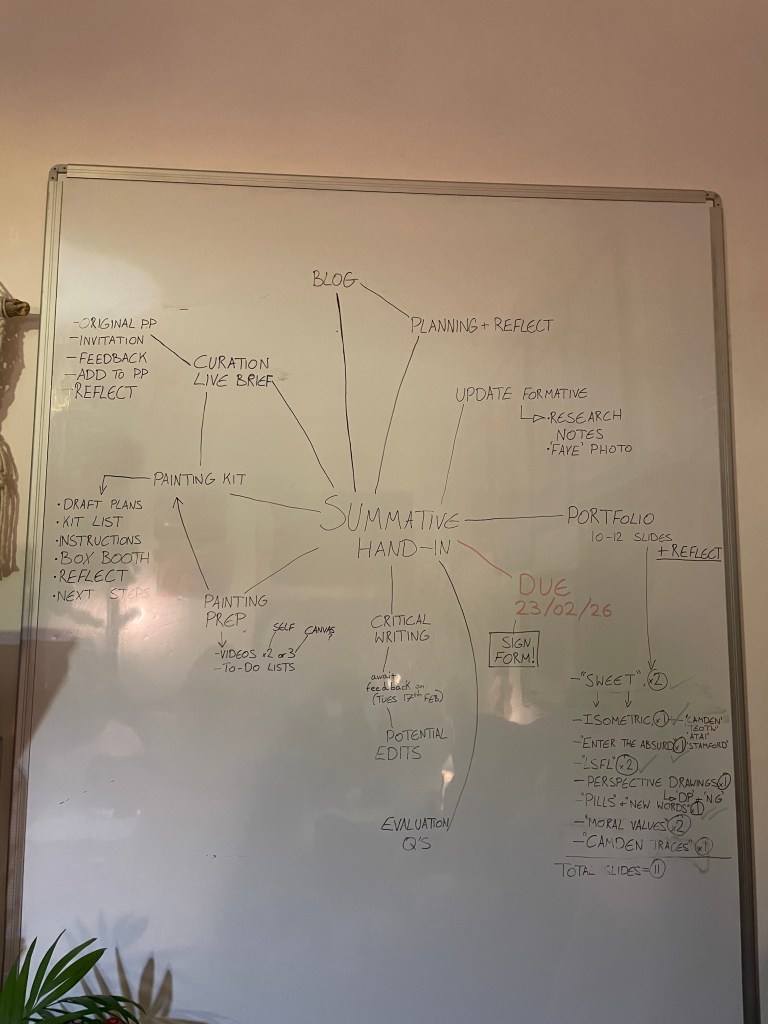 BLOG
PLANNING + REFLECT
- ORIGINAL PP
- INVITATION
- FEEDBACK
- ADD TO PP
- REFLECT
CURATION
LIVE BRIEF
UPDATE FORMATIVE
• RESEARCH
NOTES
• 'FAYE' PHOTO
PAINTING KIT
• DRAFT PLANS
• KIT LIST
• INSTRUCTIONS
• BOX BOOTH
• REFLECT
• NEXT STEPS
SUMMATIVE
HAND-IN
PORTFOLIO
10-12 SLIDES
+ REFLECT
DUE
23/02/26
SIGN
FORM!
PAINTING
PREP
SELF
CANVAS?
- VIDEOS x2 or 3
- TO-DO LISTS
CRITICAL
WRITING
await
feedback on
(TUES 17TH FEB)
POTENTIAL
EDITS
EVALUATION
Q'S
- "SWEET" x2
- ISOMETRIC x1 - 'CAMDEN'
'TEOTW'
'ATAI'
- "ENTER THE ABSURD" x1 'STAMFORD'
- "LSFL" x2
- PERSPECTIVE DRAWINGS x1
'DP' + 'NG'
- "PILLS" + "NEW WORDS" x1
- "MORAL VALUES" x2
- "CAMDEN TRACES" x1
TOTAL SLIDES = 11